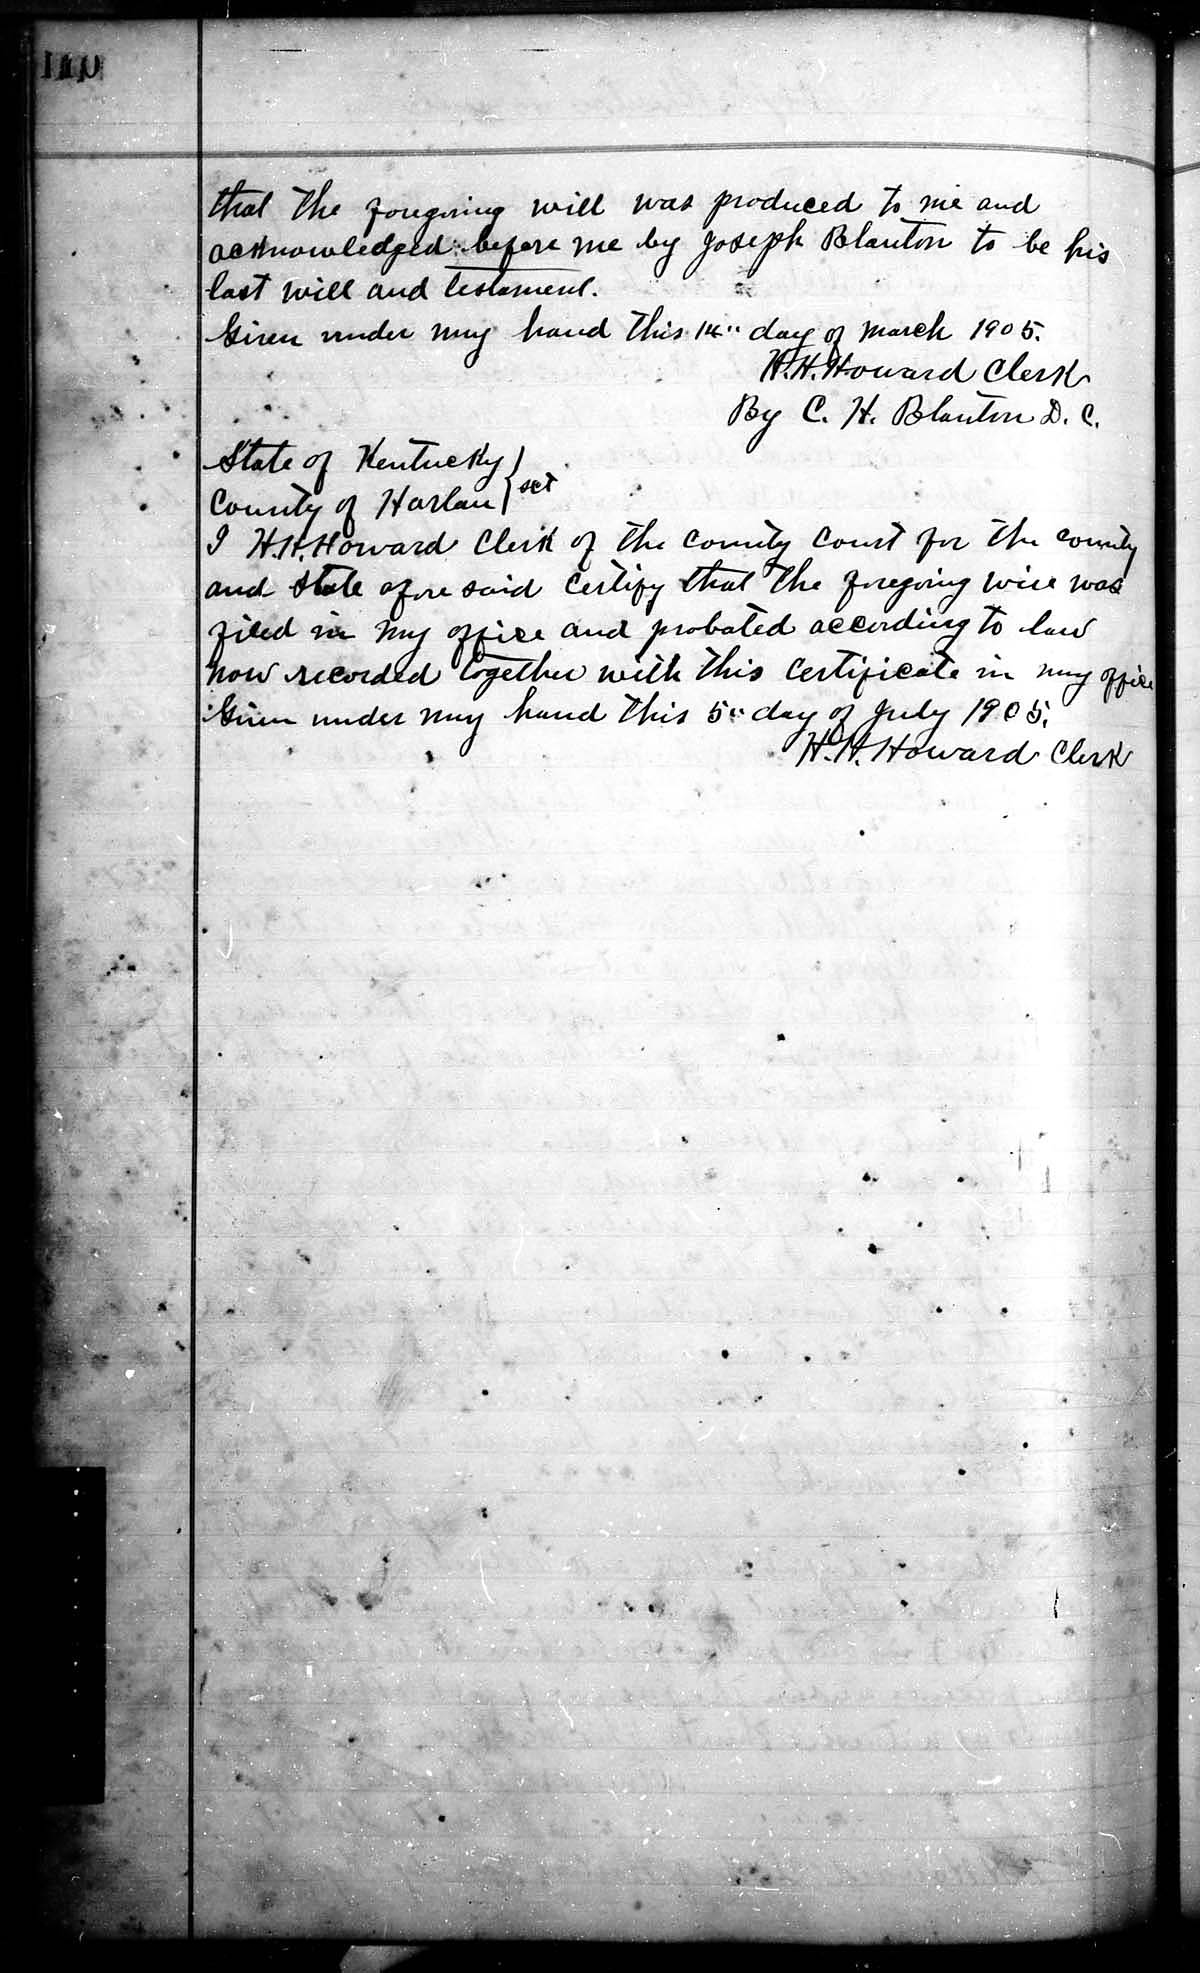 that the foregoing will was produced to me and
acknowledged before me by Joseph Blanton to be his
last will and testament.
Given under my hand this 14" day of March 1905.
H. H. Howard Clerk
By C. H. Blanton D. C.
State of Kentucky }
County of Harlan } sct
I H. H. Howard Clerk of the county court for the county
and state afore said certify that the foregoing will was
filed in my office and probated according to law
now recorded together with this certificate in my office
Given under my hand this 5" day of July 1905.
H. H. Howard Clerk